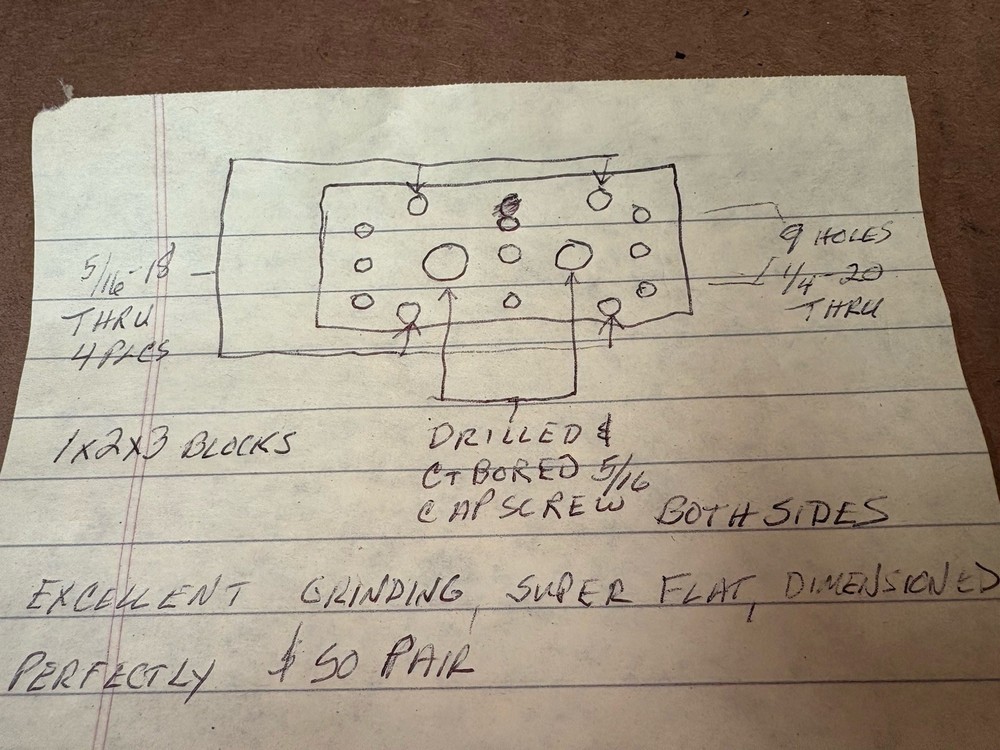 5/16-18
THRU
4 PLCS
9 HOLES
1/4-20
THRU
1X2X3 BLOCKS
DRILLED &
CTBORED 5/16
CAPSCREW BOTH SIDES
EXCELLENT GRINDING, SUPER FLAT, DIMENSIONED
PERFECTLY $50 PAIR